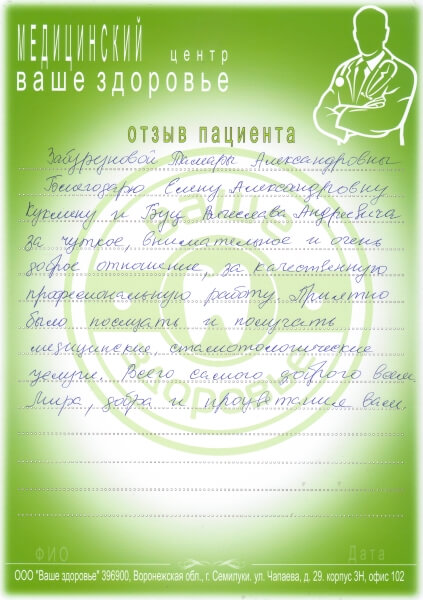 МЕДИЦИНСКИЙ центр
ваше здоровье
отзыв пациента
Забуруновой Тамары Александровны
Благодарю Елену Александровну
Куклину и Буц Вячеслава Андреевича
за чуткое, внимательное и очень
доброе отношение, за качественную
профессиональную работу. Приятно
было посещать и получать
медицинские, стамотологические
услуги. Всего самого доброго всем.
Мира, добра и процветания вам.
ФИО Дата
ООО "Ваше здоровье" 396900, Воронежская обл., г. Семилуки. ул. Чапаева, д. 29. корпус 3Н, офис 102